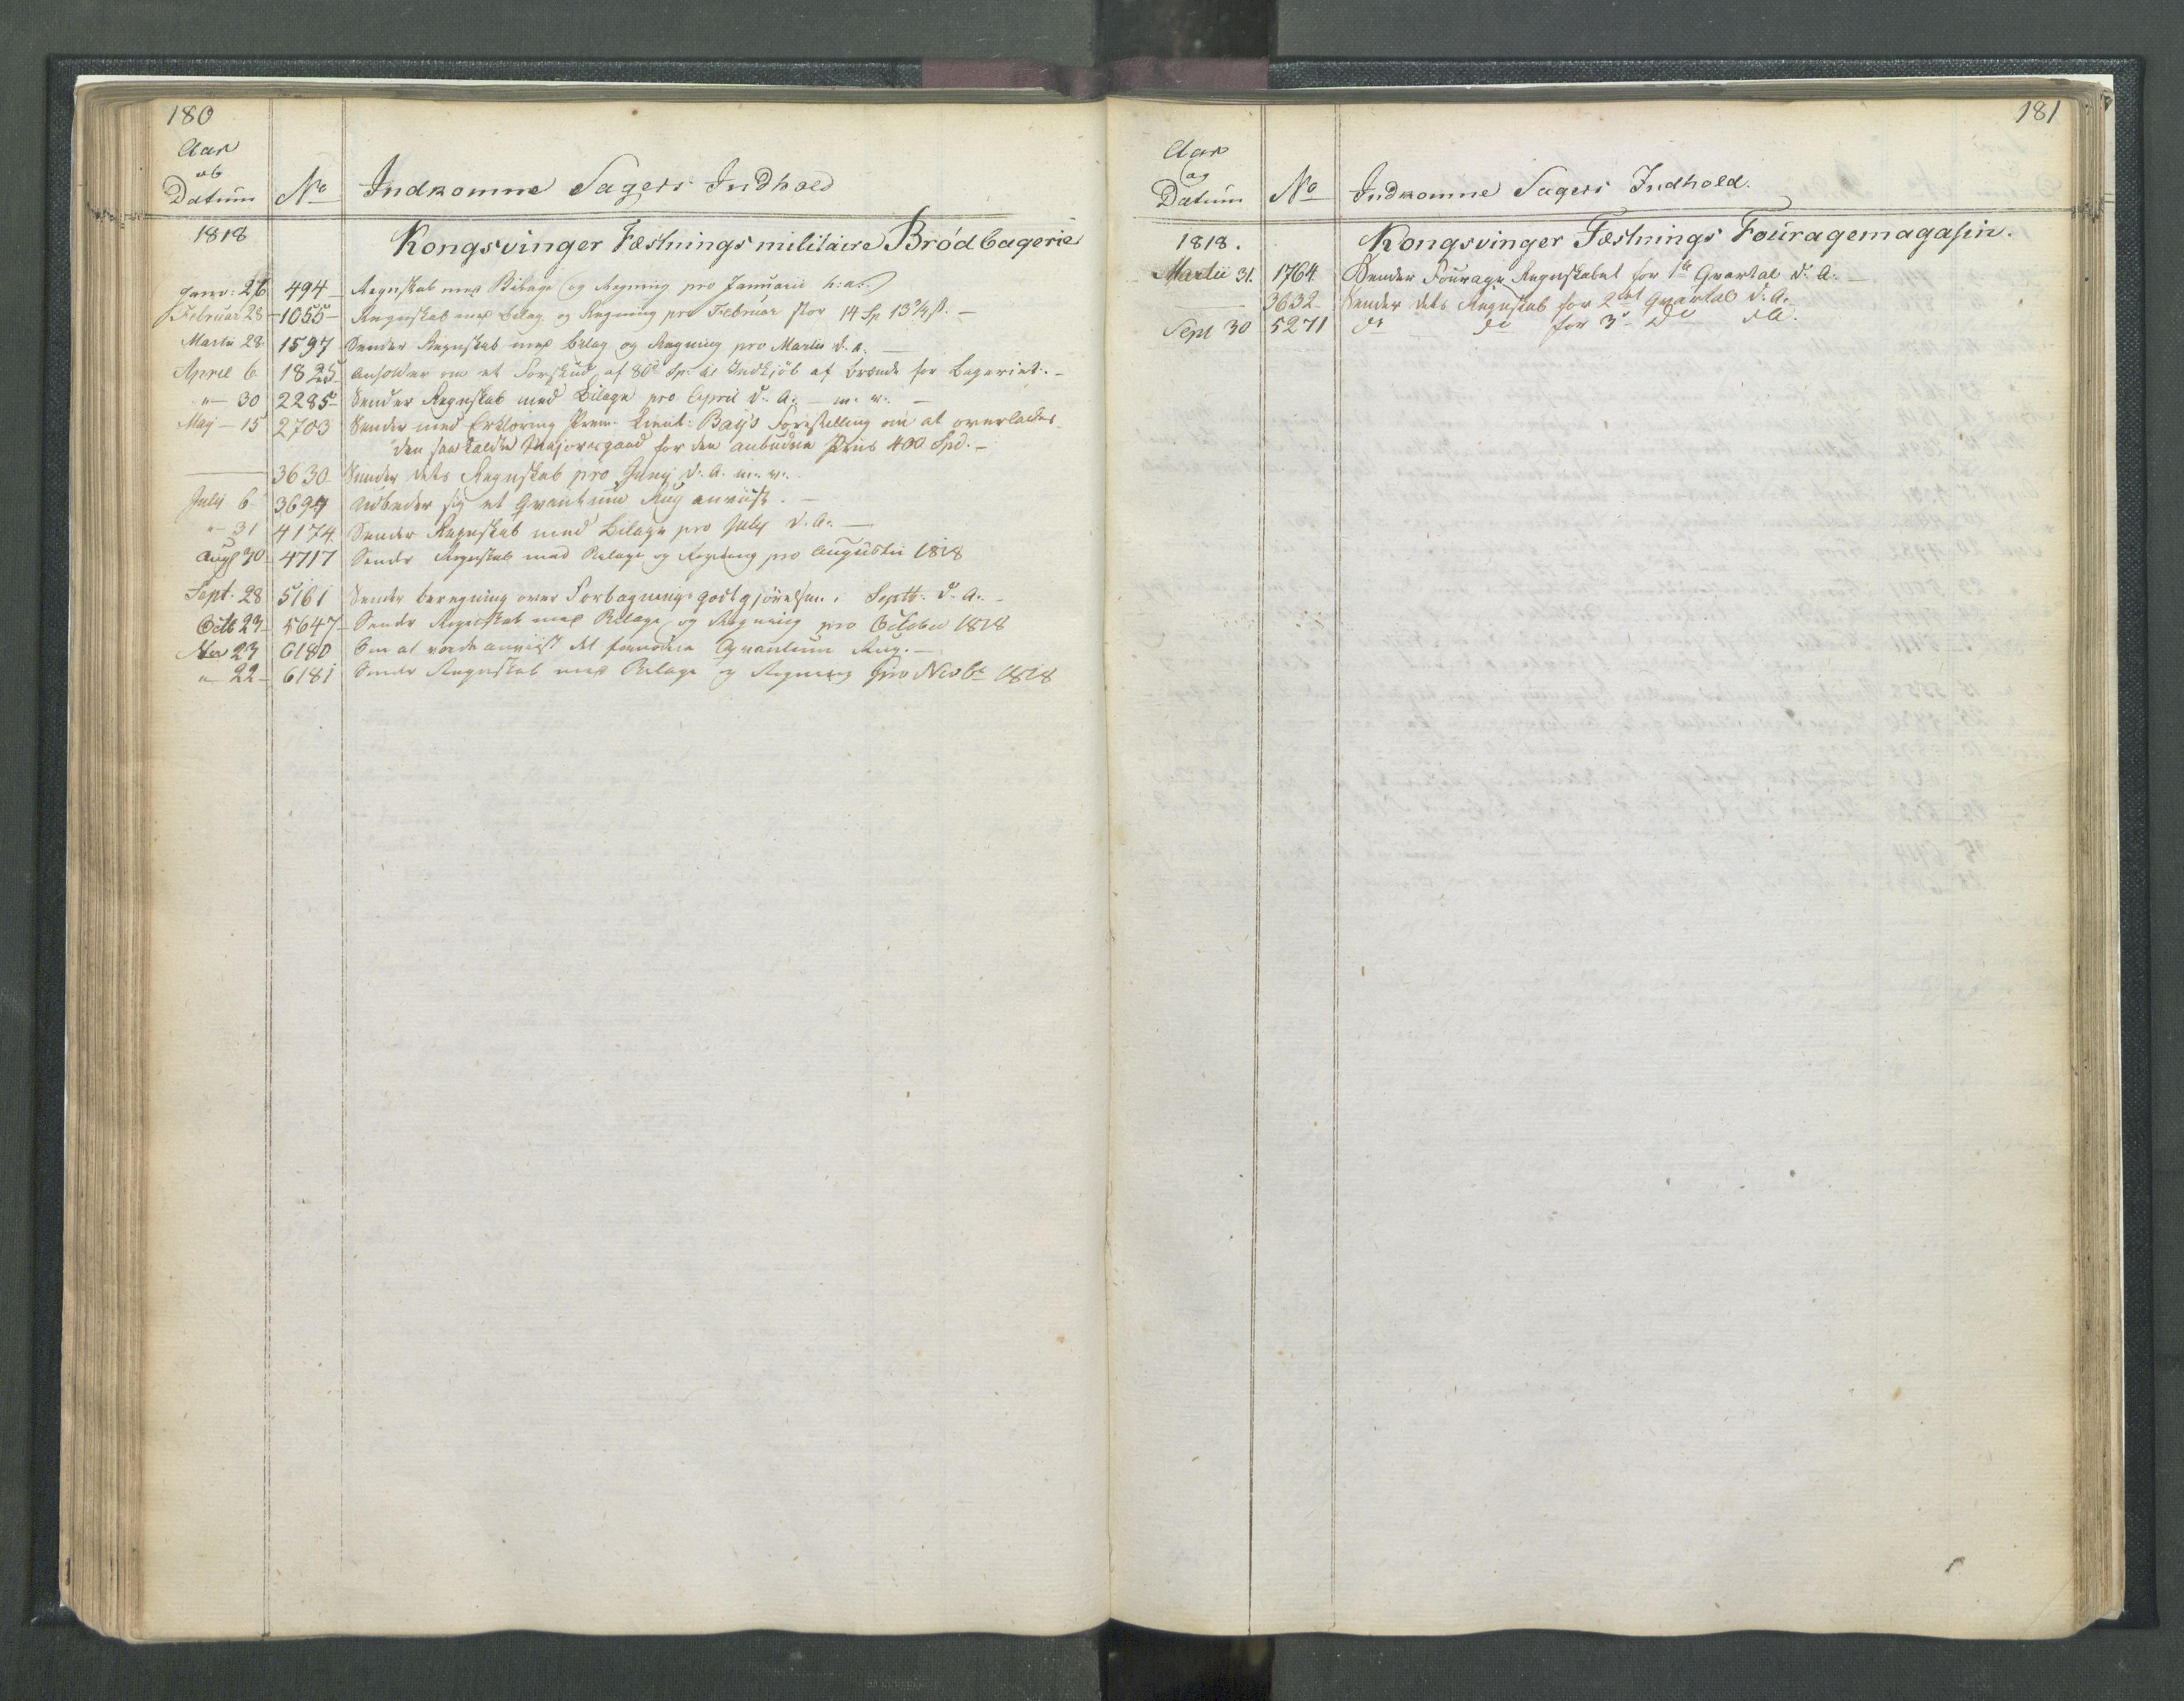 180
Aar
og
Datum No Indkomne Sagers Indhold
1818 Kongsvinger Fæstnings militaire Brødbagerie
Janv: 26 494 Regnskab med Bilage og Regning pro Januarii h: a:
Februar 28 1055 Regnskab med Bilag og Regning pro Februar stor 14 Sp 13 3/4 ß. —
Martii 28 1597 Sender Regnskab med bilag og Regning pro Martii d. a. —
April 6 1825 Anholder om et Forskud af 80 Sp: til Indkjøb af brænde for bageriet. —
" — 30 2285 Sender Regnskab med Bilage pro April d. A. — m. v. —
Maj — 15 2703 Sender med Erklæring Prem: Lieut: Bay's Forestilling om at overlades
den saa kaldte Majorsgaard for den anbudne Priis 400 Spd. —
3630 Sender dets Regnskab pro Junij d. A. m. v.
July 6 3694 Udbeder sig et Qvantum Rug anviist. —
" — 31 4174 Sender Regnskab med Bilage pro July d. A. —
Augst 30 4717 Sender Regnskab med Bilage og Regning pro Augusti 1818
Sept. 28 5161 Sender beregning over Forbagnings godtgjørelsen i Septb. d. A. —
Octb 23 5647 Sender Regnskab med Bilage og Regning pro October 1818
Nov 23 6180 Om at vorde anviist det fornødne Qvantum Rug. —
" 22 6181 Sender Regnskab med Bilage og Regning pro Novbr 1818
181
Aar
og
Datum No Indkomne Sagers Indhold.
1818. Kongsvinger Fæstnings Fouragemagasin.
Martii 31. 1764 Sender Fourage Regnskabet for 1ste Qvartal d. A. —
3632 Sender dets Regnskab for 2det Qvartal d. A. —
Sept 30 5271 do do for 3die Do d A.